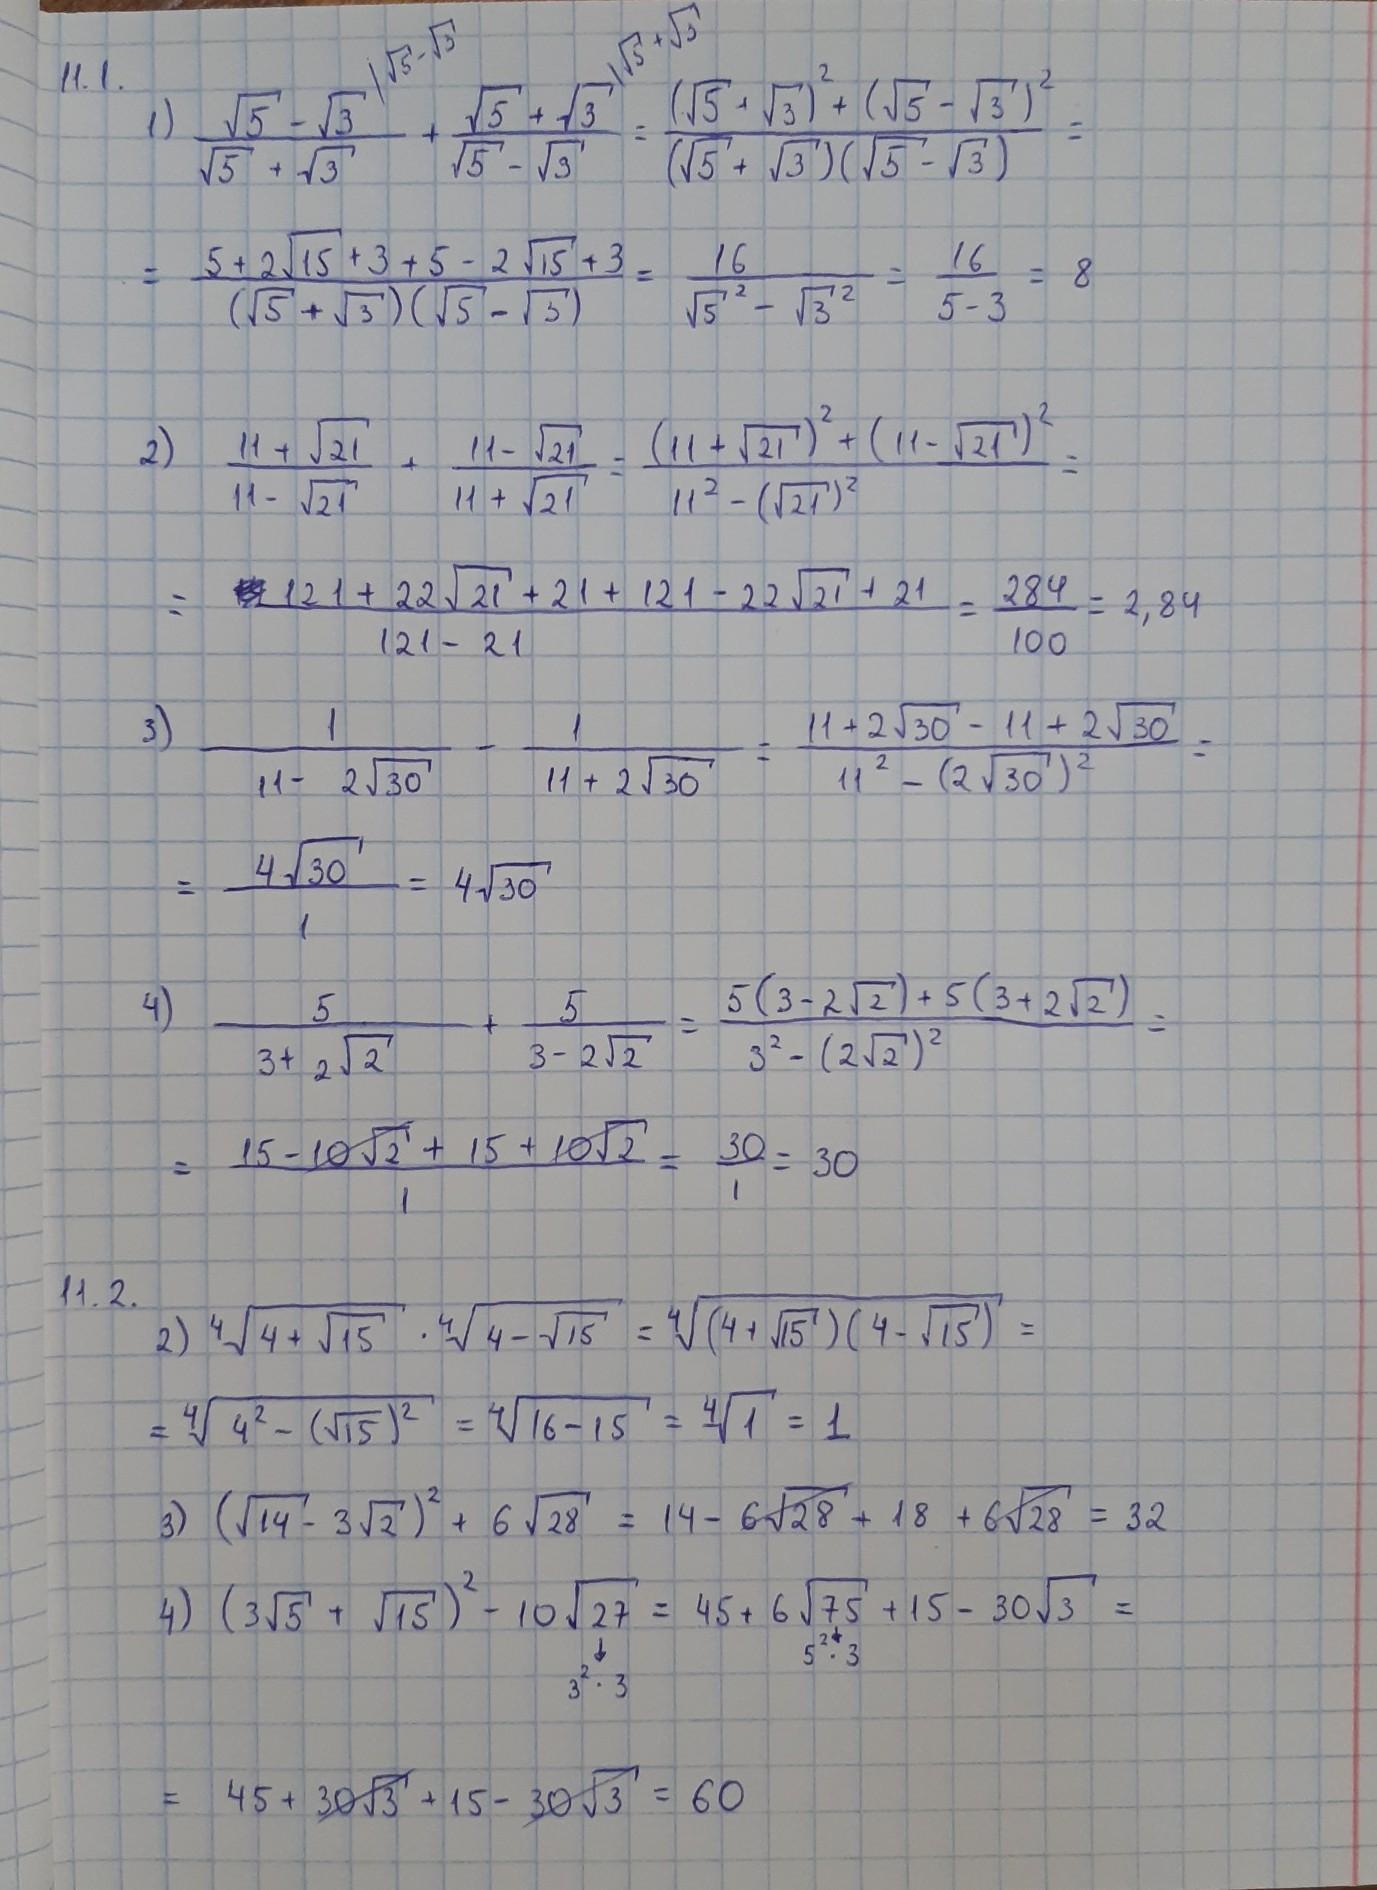 11.1.
1) (√5 - √3)/(√5 + √3) |√5-√3 + (√5 + √3)/(√5 - √3) |√5+√3 = ((√5 + √3)² + (√5 - √3)²)/((√5 + √3)(√5 - √3)) =
= (5 + 2√15 + 3 + 5 - 2√15 + 3)/((√5 + √3)(√5 - √3)) = 16/(√5² - √3²) = 16/(5-3) = 8
2) (11 + √21)/(11 - √21) + (11 - √21)/(11 + √21) = ((11 + √21)² + (11 - √21)²)/(11² - (√21)²) =
= (121 + 22√21 + 21 + 121 - 22√21 + 21)/(121 - 21) = 284/100 = 2,84
3) 1/(11 - 2√30) - 1/(11 + 2√30) = (11 + 2√30 - 11 + 2√30)/(11² - (2√30)²) =
= 4√30/1 = 4√30
4) 5/(3 + 2√2) + 5/(3 - 2√2) = (5(3 - 2√2) + 5(3 + 2√2))/(3² - (2√2)²) =
= (15 - 10√2 + 15 + 10√2)/1 = 30/1 = 30
11.2.
2) ⁴√(4 + √15) · ⁴√(4 - √15) = ⁴√((4 + √15)(4 - √15)) =
= ⁴√(4² - (√15)²) = ⁴√(16 - 15) = ⁴√1 = 1
3) (√14 - 3√2)² + 6√28 = 14 - 6√28 + 18 + 6√28 = 32
4) (3√5 + √15)² - 10√27 = 45 + 6√75 + 15 - 30√3 =
↓ 3² · 3 ↓ 5² · 3
= 45 + 30√3 + 15 - 30√3 = 60